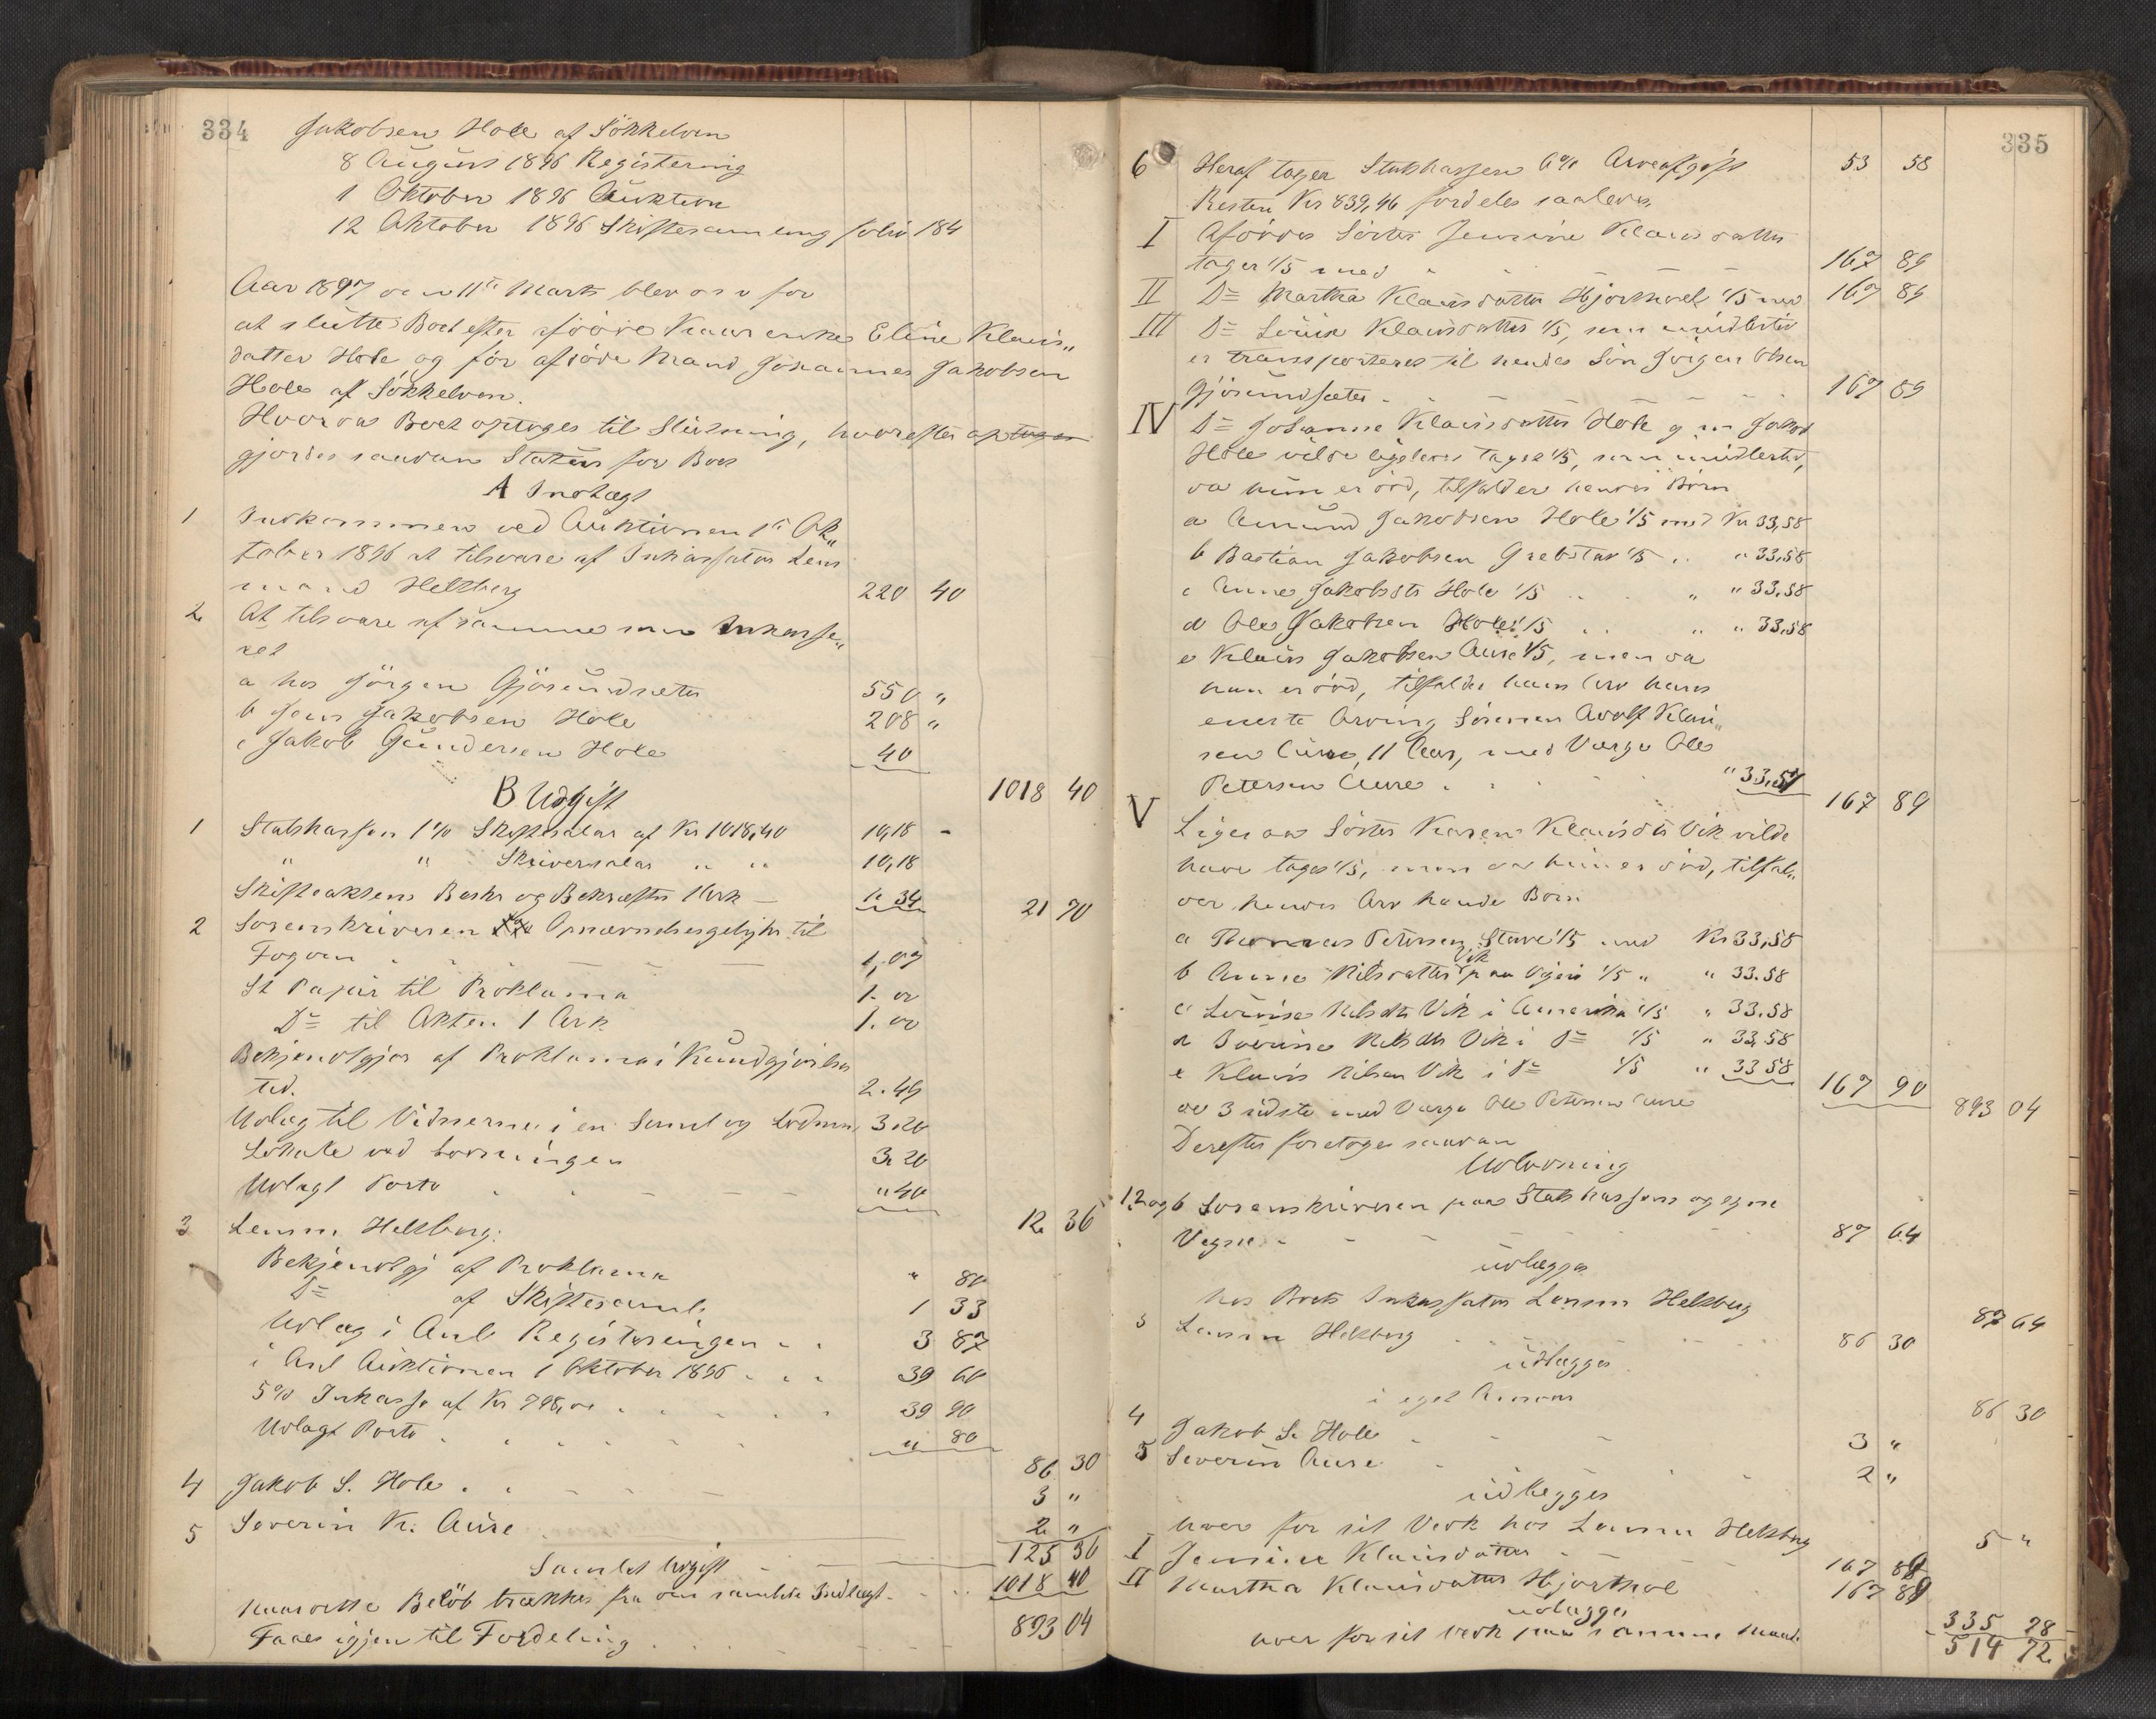 334
Jakobsen Hole af Sökkelven
8 August 1896 Registering
1 Oktober 1896 Auktion
12 Oktober 1896 Skiftesamling folio 184
Aar 1897 den 11te Marts blev for
at slutte Boet efter afdöde Kaarenke Eline Klaus„
datter Hole og för afdöde Mand Johannes Jakobsen
Hole af Sökkelven.
Hvorda Boet optoges til Slutning, hvorefter optoges
gjordes saadan Status for Boet
A Indtægt
1 Indkommen ved Auktionen 1te Ok„
tober 1896 at tilsvare af Inkassator Lens
mand Helsberg 220 40
2 At tilsvare af samme som Inkasse„
ret
a hos Jörgen Gjösundsæter 550 „
b Jens Jakobsen Hole 208 „
c Jakob Gundersen Hole 40
1018 40
B Udgift
1 Statskassen 1% Skiftesalar af Kr 1018,40 10,18 -
„ „ Skriversalar „ „ 10,18
Skifteaktens Beskr og Bekræftn 1 Ark - 1. 34
21 70
2 Sorenskriveren Opnævnelsesgebyhr til
Fogden 1,07
St Papir til Proklama 1. 00
Do til Akten 1 Ark 1. 00
Bekjendtgjör af Proklama i Kundgjörelses
tid. 2. 49
Udlæg til Vidnerne i en Saml og Lodmn 3.20
Lokale ved Lodningen 3.20
Udlagt Porto „ 40
12 36
3 Lensm. Helsberg:
Bekjendtgj af Proklama „ 80
Do af Skiftesaml. 1 33
Udlæg i Anl Registeringen 3 87
i Anl Auktionen 1 Oktober 1896 39 60
5% Inkasso af Kr 798,00 39 90
Udlagt Porto „ 80
86 30
4 Jakob S. Hole 3 „
5 Severin K. Aure 2 „
Samlet Udgift 125 36
naar dette Belöb trækkes fra den samlede Indtægt 1018 40
Faaes igjen til Fordeling 893 04
335
6 Heraf tager Statskassen 6% Arveafgift 53 58
Resten Kr 839,46 fordeles saaledes
I Afdödes Söster Jensine Klausdatter
tager 1/5 med 167 89
II Do Martha Klausdatter Hjorthoel 1/5 med 167 89
III Do Lovise Klausdatter 1/5, som imidlertid
er transporteret til hendes Sön Jörgen Olsen
Gjösundsæter 167 89
IV Do Johanne Klausdatter Hole g m Jakob
Hole vilde ligeledes taget 1/5, som imidlertid,
da hun er död, tilfalder hendes Börn
a Amund Jakobsen Hole 1/5 med Kr 33,58
b Bastian Jakobsen Grebstad 1/5 „ „ 33,58
c Anne Jakobsdtr Hole 1/5 „ „ 33,58
d Ole Jakobsen Hole 1/5 „ „ 33,58
e Klaus Jakobsen Aure 1/5, men da
han er död, tilfalder hans Arv hans
eneste Arving Sönnen Adolf Klau„
sen Aure, 11 Aar, med Værge Ole
Petersen Aure „ 33,57
167 89
V Ligesaa Söster Karen Klausdtr Vik vilde
have taget 1/5, men da hun er död, tilfal„
der hendes Arv hendes Börn
a Thomas Petersen Stave 1/5 med Kr 33,58
b Anne Nilsdatter Vik paa Vejen 1/5 „ „ 33.58
c Lovise Nilsdtr Vik i Amerika 1/5 „ 33.58
d Severine Nilsdtr Vik i Do 1/5 „ 33,58
e Klaus Nilsen Vik i Do 1/5 „ 33 58
167 90
de 3 sidste med Værge Ole Petersen Aure 893 04
Derefter foretoges saadan
Udlodning
1,2 og 6 Sorenskriveren paa Statskassens og egne
Vegne 87 64
udlægges
hos Boets Inkassator Lensm Helsberg
87 64
3 Lensm Helsberg 86 30
udlægges
i eget Ansvar
86 30
4 Jakob S. Hole 3 „
5 Severin Aure 2 „
udlægges
hver for sit Vedk hos Lensm Helsberg
5 „
I Jensine Klausdatter 167 89
II Martha Klausdatter Hjorthol 167 89
udlægges
hver for sit Vedk paa samme Maade
335 78
514 72